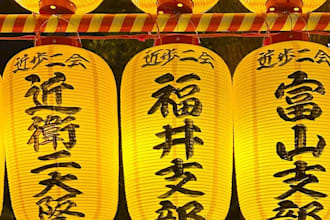 近歩二会
近衛二大阪
近歩二会
福井支部
近歩二会
富山支部